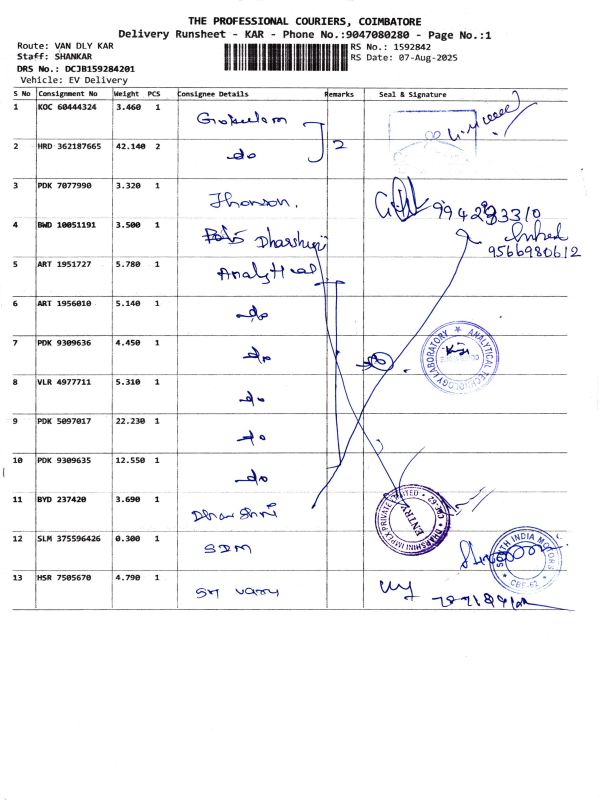 THE PROFESSIONAL COURIERS, COIMBATORE
Delivery Runsheet - KAR - Phone No.:9047080280 - Page No.:1
Route: VAN DLY KAR
RS No.: 1592842
Staff: SHANKAR
RS Date: 07-Aug-2025
DRS No.: DCJB159284201
Vehicle: EV Delivery
S No Consignment No Weight PCS Consignee Details Remarks Seal & Signature
1 KOC 60444324 3.460 1 Gokulam
2 HRD 362187665 42.140 2 do 2
3 PDK 7077990 3.320 1 Jhonson.
4 BWD 10051191 3.500 1 Dharshini
9566980612
5 ART 1951727 5.780 1 Analytical
6 ART 1956010 5.140 1 do
7 PDK 9309636 4.450 1 do
ANALYTICAL TECHNOLOGY LABORATORY
8 VLR 4977711 5.310 1 do
9 PDK 5097017 22.230 1 do
10 PDK 9309635 12.550 1 do
11 BYD 237420 3.690 1 Dharshni
DHARSHINI IMPEX PRIVATE LIMITED CBE-62
ENTRY
12 SLM 375596426 0.300 1 SDM
SOUTH INDIA MOTORS
CBE-62
13 HSR 7505670 4.790 1